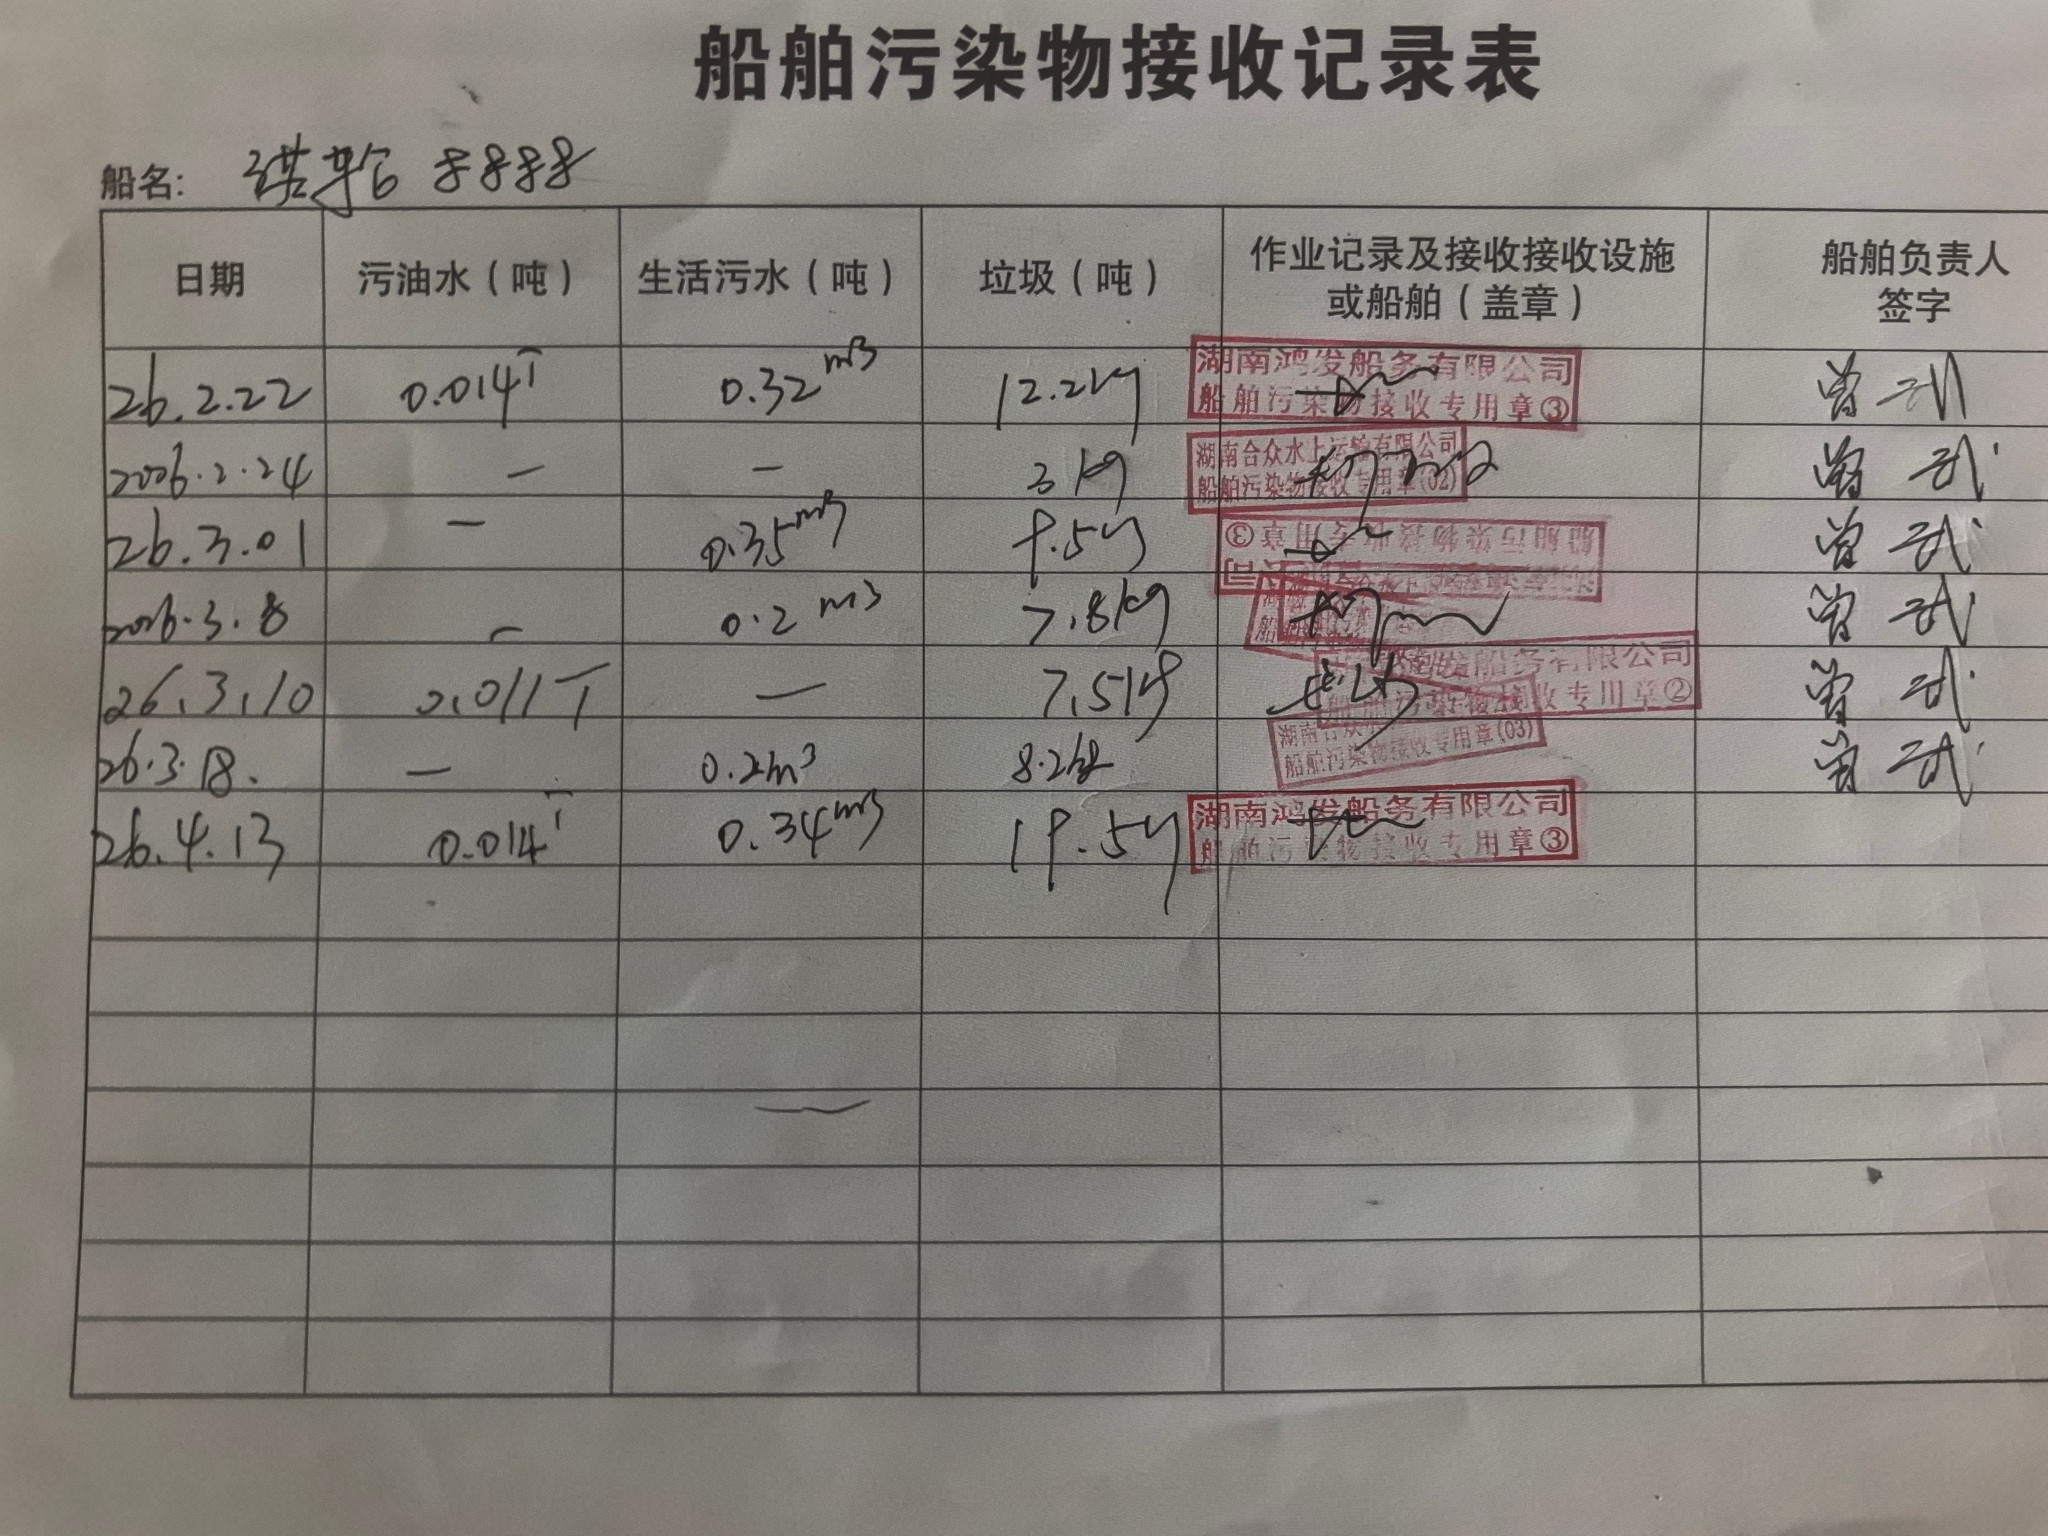 船舶污染物接收记录表
船名: 8888
日期 污油水（吨） 生活污水（吨） 垃圾（吨） 作业记录及接收接收设施或船舶（盖章） 船舶负责人签字
26.2.22 0.014T 0.32m3 12.2kg 湖南鸿发船务有限公司 船舶污染物接收专用章③ 曾武
2026.2.24 — — 3kg 湖南合众水上运输有限公司 船舶污染物接收专用章(02) 曾武
26.3.01 — 0.35m3 9.5kg 船舶污染物接收专用章③ 曾武
2026.3.8 — 0.2m3 7.8kg 曾武
26.3.10 0.011T — 7.5kg 发船务有限公司 污染物接收专用章② 曾武
26.3.18. — 0.2m³ 8.2kg 湖南合众 船舶污染物接收专用章(03) 曾武
26.4.13 0.014T 0.34m3 19.5kg 湖南鸿发船务有限公司 船舶污染物接收专用章③